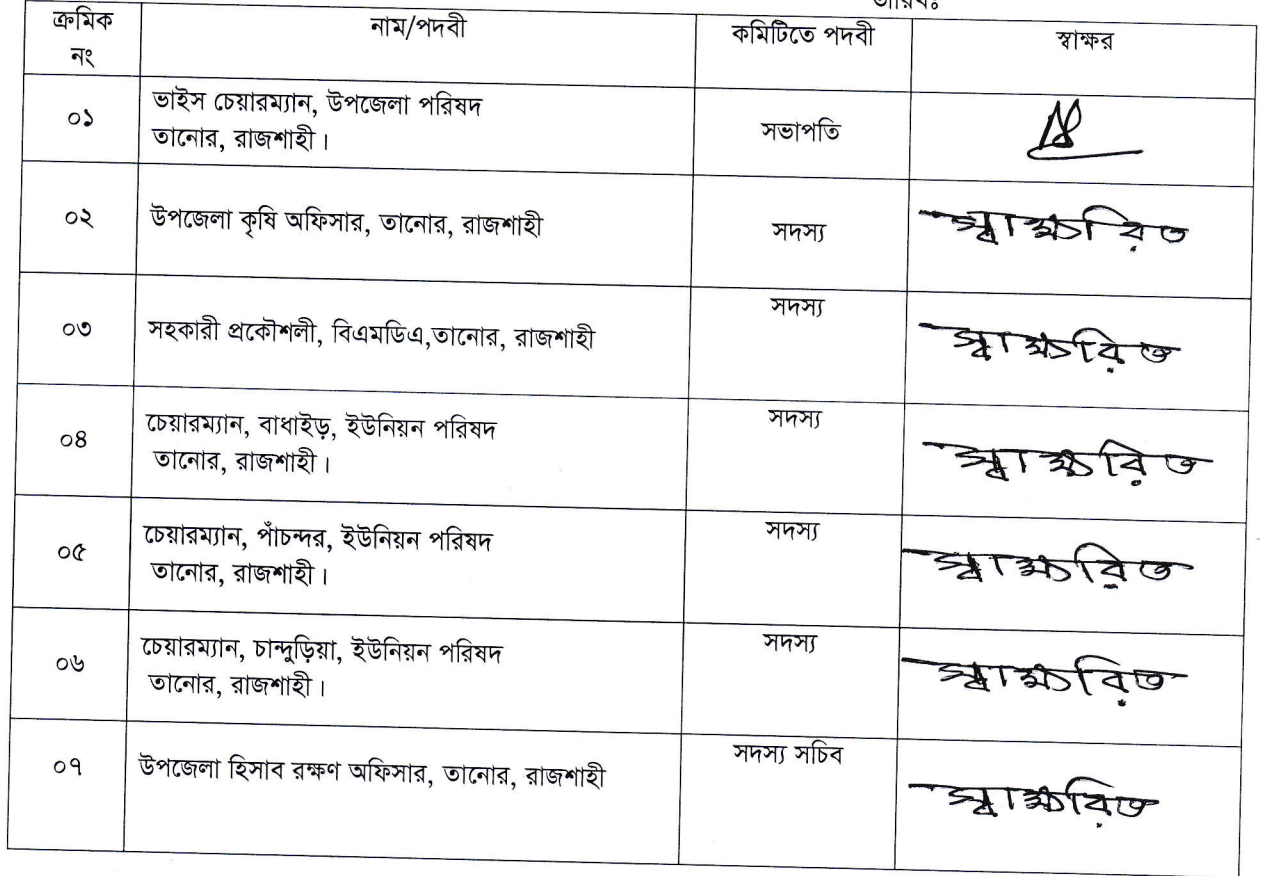 তারিখঃ
ক্রমিক নং নাম/পদবী কমিটিতে পদবী স্বাক্ষর
০১ ভাইস চেয়ারম্যান, উপজেলা পরিষদ
তানোর, রাজশাহী। সভাপতি
০২ উপজেলা কৃষি অফিসার, তানোর, রাজশাহী সদস্য স্বাক্ষরিত
০৩ সহকারী প্রকৌশলী, বিএমডিএ,তানোর, রাজশাহী সদস্য স্বাক্ষরিত
০৪ চেয়ারম্যান, বাধাইড়, ইউনিয়ন পরিষদ
তানোর, রাজশাহী। সদস্য স্বাক্ষরিত
০৫ চেয়ারম্যান, পাঁচন্দর, ইউনিয়ন পরিষদ
তানোর, রাজশাহী। সদস্য স্বাক্ষরিত
০৬ চেয়ারম্যান, চান্দুড়িয়া, ইউনিয়ন পরিষদ
তানোর, রাজশাহী। সদস্য স্বাক্ষরিত
০৭ উপজেলা হিসাব রক্ষণ অফিসার, তানোর, রাজশাহী সদস্য সচিব স্বাক্ষরিত